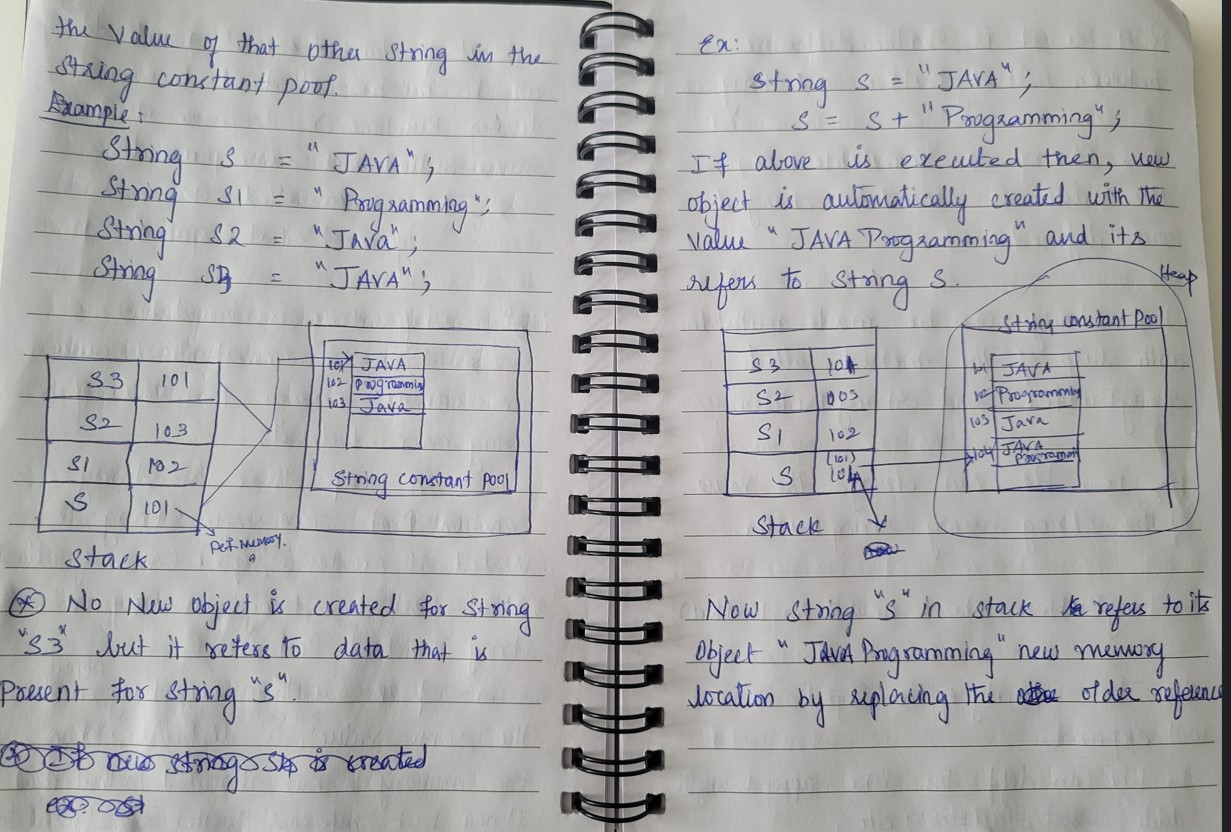 the Value of that other String in the
String constant pool.
Example:
String S = "JAVA";
String S1 = "Programming";
String S2 = "Java";
String S3 = "JAVA";
S3 101
S2 103
S1 102
S 101
Stack
101 JAVA
102 Programming
103 Java
String constant pool
* No New Object is created for String
"S3" but it refers to data that is
Present for String "S".
Ex:
String S = "JAVA";
S = S + "Programming";
If above is executed then, new
object is automatically created with the
Value "JAVA Programming" and its
refers to String S.
Heap
String constant Pool
S3 101
S2 003
S1 102
S (101) 104
Stack
101 JAVA
102 Programming
103 Java
104 JAVA Programm
Now String "S" in stack refers to its
Object "JAVA Programming" new memory
location by replacing the older reference